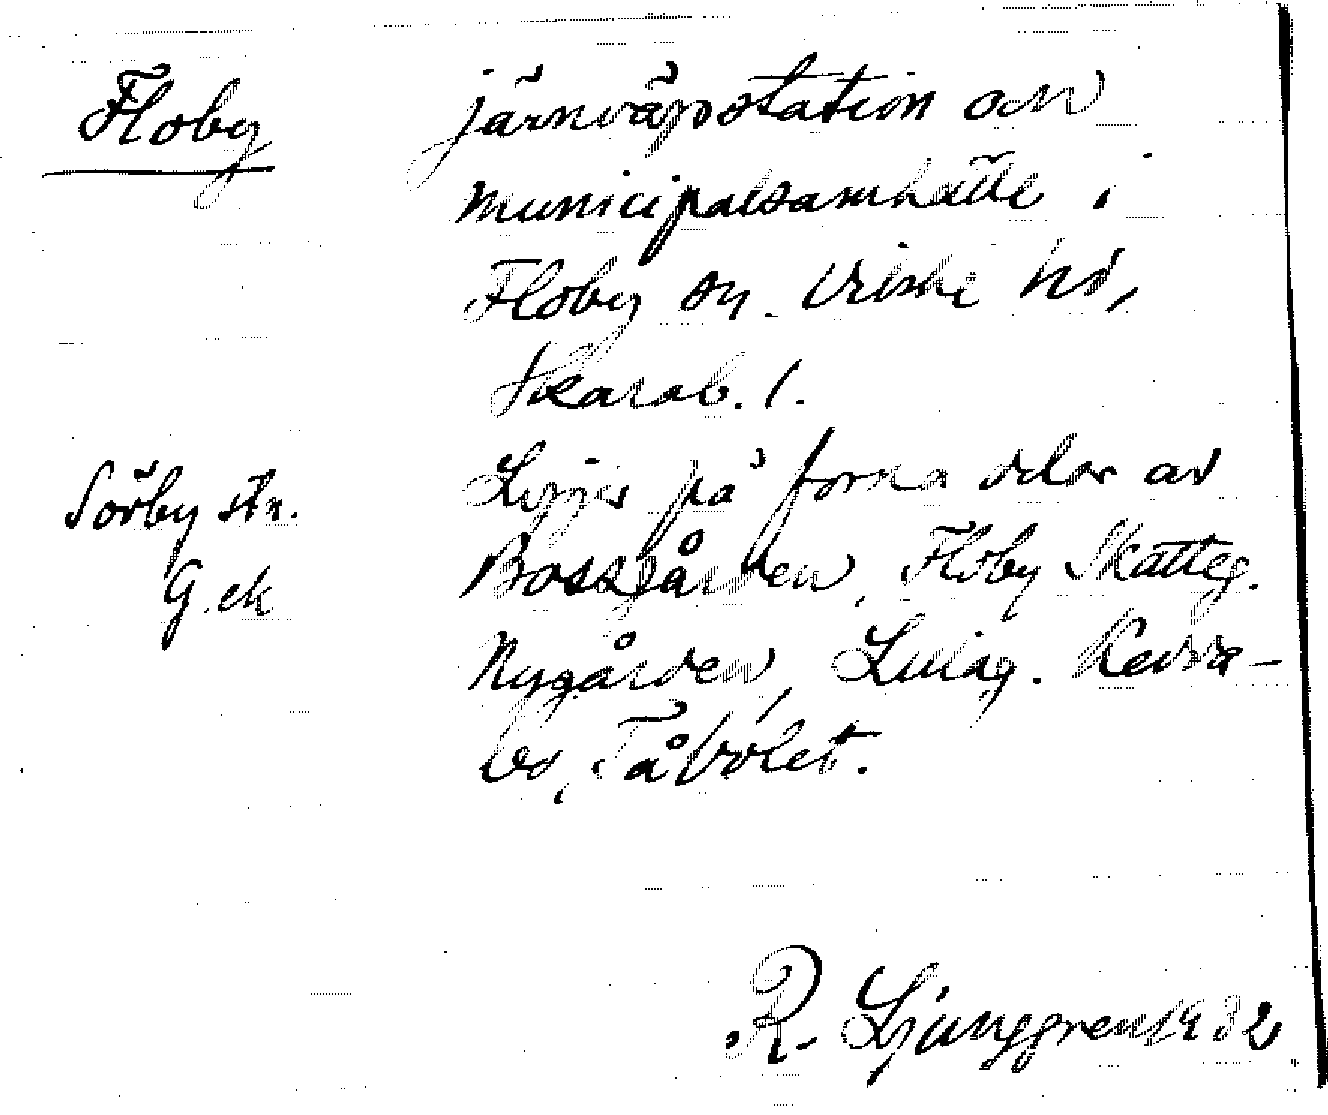 Floby
järnvägsstation och
municipalsamhälle i
Floby sn. Vilske hd,
Skarab. l.
Sörby stn.
G. ek
Ligger på forna delar av
Bossgården, Floby Skatteg.
Nygården, Lillag. Redva-
bo, Tåbolet.
R. Ljunggren 1932